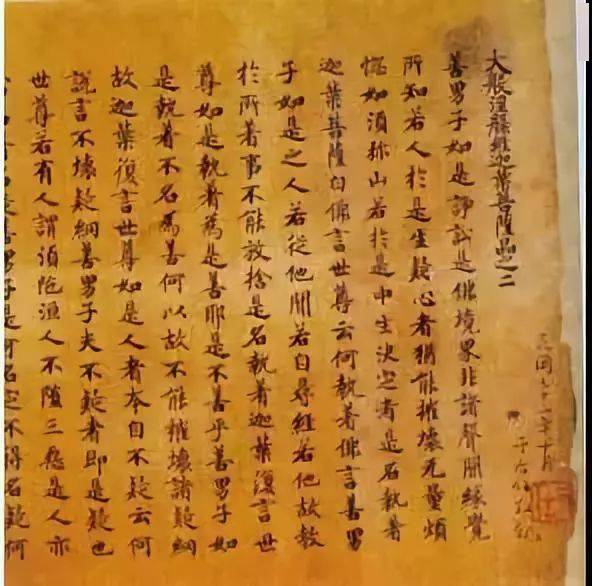 大般涅槃經迦葉菩薩品之二
善男子如是諍訟是佛境界非諸聲聞緣覺
所知若人於是生疑心者猶能摧壞无量煩
惱如須弥山若於是中生決定者是名執著
迦葉菩薩白佛言世尊云何執著佛言善男
子如是之人若從他聞若自尋經若他故教
於所著事不能放捨是名執著迦葉復言世
尊如是執著為是善耶是不善乎善男子如
是執著不名為善何以故不能摧壞諸疑網
故迦葉復言世尊如是人者本自不疑云何
說言不壞疑網善男子夫不疑者即是疑也
世尊若有人謂須陀洹人不墮三惡是人亦
名疑善男子是可名定不得名疑何